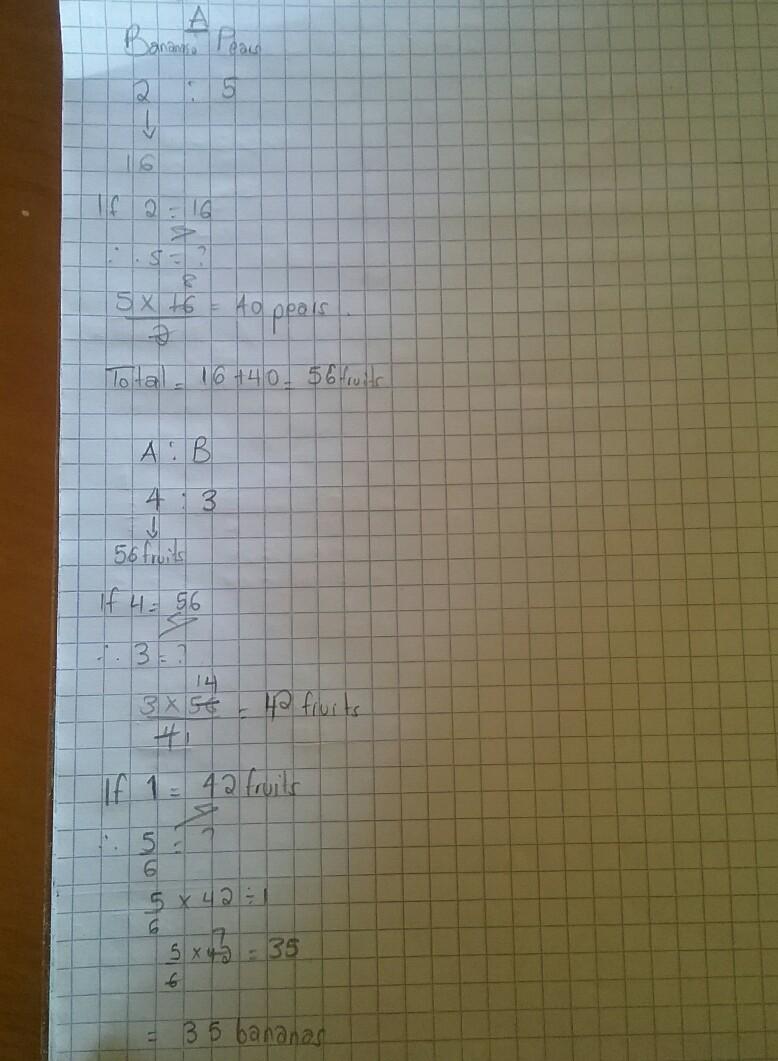 A
Bananas : Pears
2 : 5
↓
16
If 2 = 16
∴ 5 = ?
8
5 × 16 = 40 pears.
2
Total = 16 + 40 = 56 fruits
A : B
4 : 3
↓
56 fruits
If 4 = 56
∴ 3 = ?
14
3 × 56 = 42 fruits
4 1
If 1 = 42 fruits
∴ 5 = ?
6
5 × 42 ÷ 1
6
7
5 × 42 = 35
6
= 35 bananas